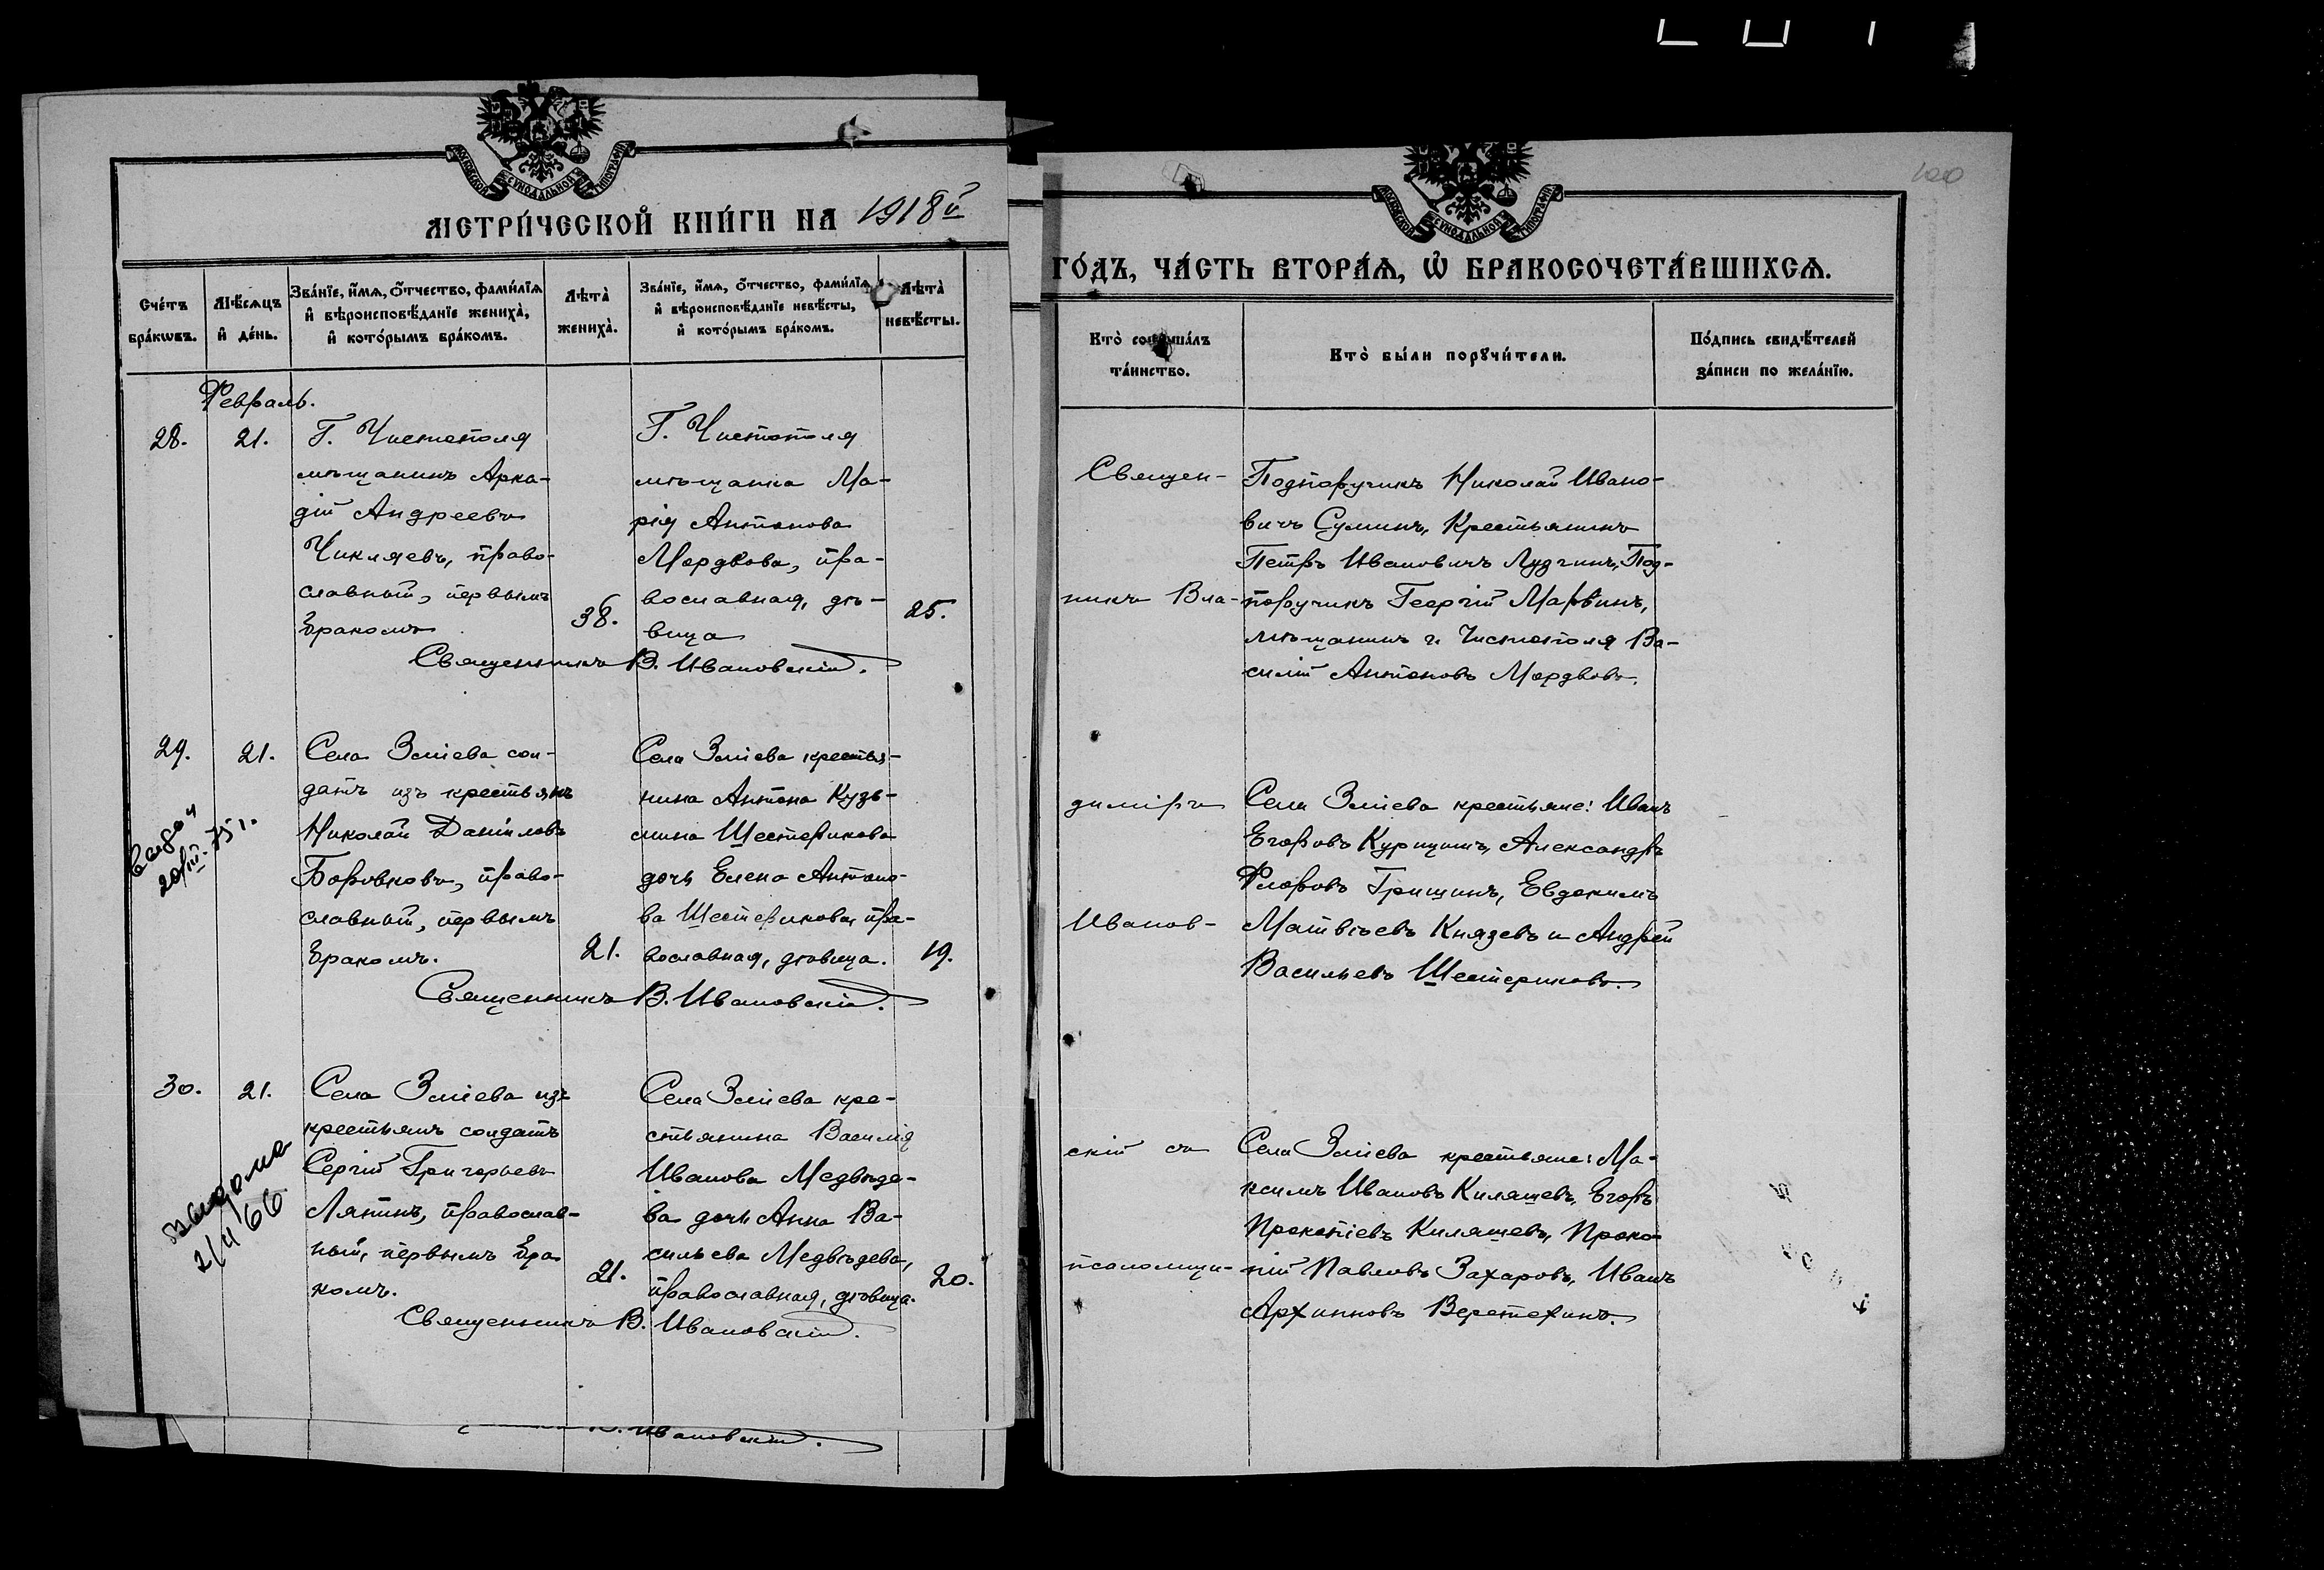 МОСКОВСКОЙ СѴНОДАЛЬНОЙ ТИПОГРАФІИ
МЕТРИ́ЧЕСКОЙ КНИ́ГИ НА 1918й
Сче́тъ бра́кѡвъ.
Мѣ́сяцъ и҆ де́нь.
Зва́нїе, и҆́мѧ, ѻ҆́тчество, фами́лїѧ
и҆ вѣроисповѣ́данїе жениха̀,
и҆ кото́рымъ бра́комъ.
Лѣта̀ жениха̀.
Зва́нїе, и҆́мѧ, ѻ҆́тчество, фами́лїѧ
и҆ вѣроисповѣ́данїе невѣ́сты,
и҆ кото́рымъ бра́комъ.
Лѣта̀ невѣ́сты.
Февраль.
28.
21.
Г. Чистополя
мѣщанинъ Арка-
дій Андреевъ
Чикляевъ, право-
славный, первымъ
бракомъ
38.
Г. Чистополя
мѣщанка Ма-
рія Антонова
Мордвова, пра-
вославная, дѣ-
вица
25.
Священникъ В. Ивановскій.
29.
21.
Села Зміева сол-
датъ изъ крестьянъ
Николай Данiиловъ
Боровковъ, право-
славный, первымъ
бракомъ.
21.
Села Зміева крестья-
нина Антона Кузь-
мина Шестерикова
дочь Елена Антоно-
ва Шестерикова, пра-
вославная, дѣвица.
19.
Священникъ В. Ивановскій.
30.
21.
Села Зміева изъ
крестьянъ солдатъ
Сергій Григорьевъ
Ляпинъ, православ-
ный, первымъ бра-
комъ.
21.
Села Зміева кре-
стьянина Василія
Иванова Медвѣде-
ва дочь Анна Ва-
сильева Медвѣдева,
православная, дѣвица.
20.
Священникъ В. Ивановскій.
В. Ивановскій.
100
МОСКОВСКОЙ СѴНОДАЛЬНОЙ ТИПОГРАФІИ
ГО́ДЪ, ЧА́СТЬ ВТОРА́Ѧ, Ѡ҆ БРАКОСОЧЕТА́ВШИХСѦ.
Кто̀ соверша́лъ та́инство.
Кто̀ бы́ли порꙋчи́тели.
По́дпись свидѣ́телей за́писи по жела́нїю.
Священ-
никъ Вла-
диміръ
Иванов-
скій съ
псаломщи-
Подпоручикъ Николай Ивано-
вичъ Суминъ, Крестьянинъ
Петръ Ивановичъ Лузгинъ, Под-
поручикъ Георгій Марвинъ,
мѣщанинъ г. Чистополя Ва-
силій Антоновъ Мордвовъ.
Села Зміева крестьяне: Иванъ
Егоровъ Курицинъ, Александръ
Флоровъ Гришинъ, Евдокимъ
Матвѣевъ Князевъ и Андрей
Васильевъ Шестериковъ.
Села Зміева крестьяне: Ма-
ксимъ Ивановъ Киляшевъ, Егоръ
Прокопіевъ Киляшевъ, Проко-
пій Павловъ Захаровъ, Иванъ
Архиповъ Веретехинъ.